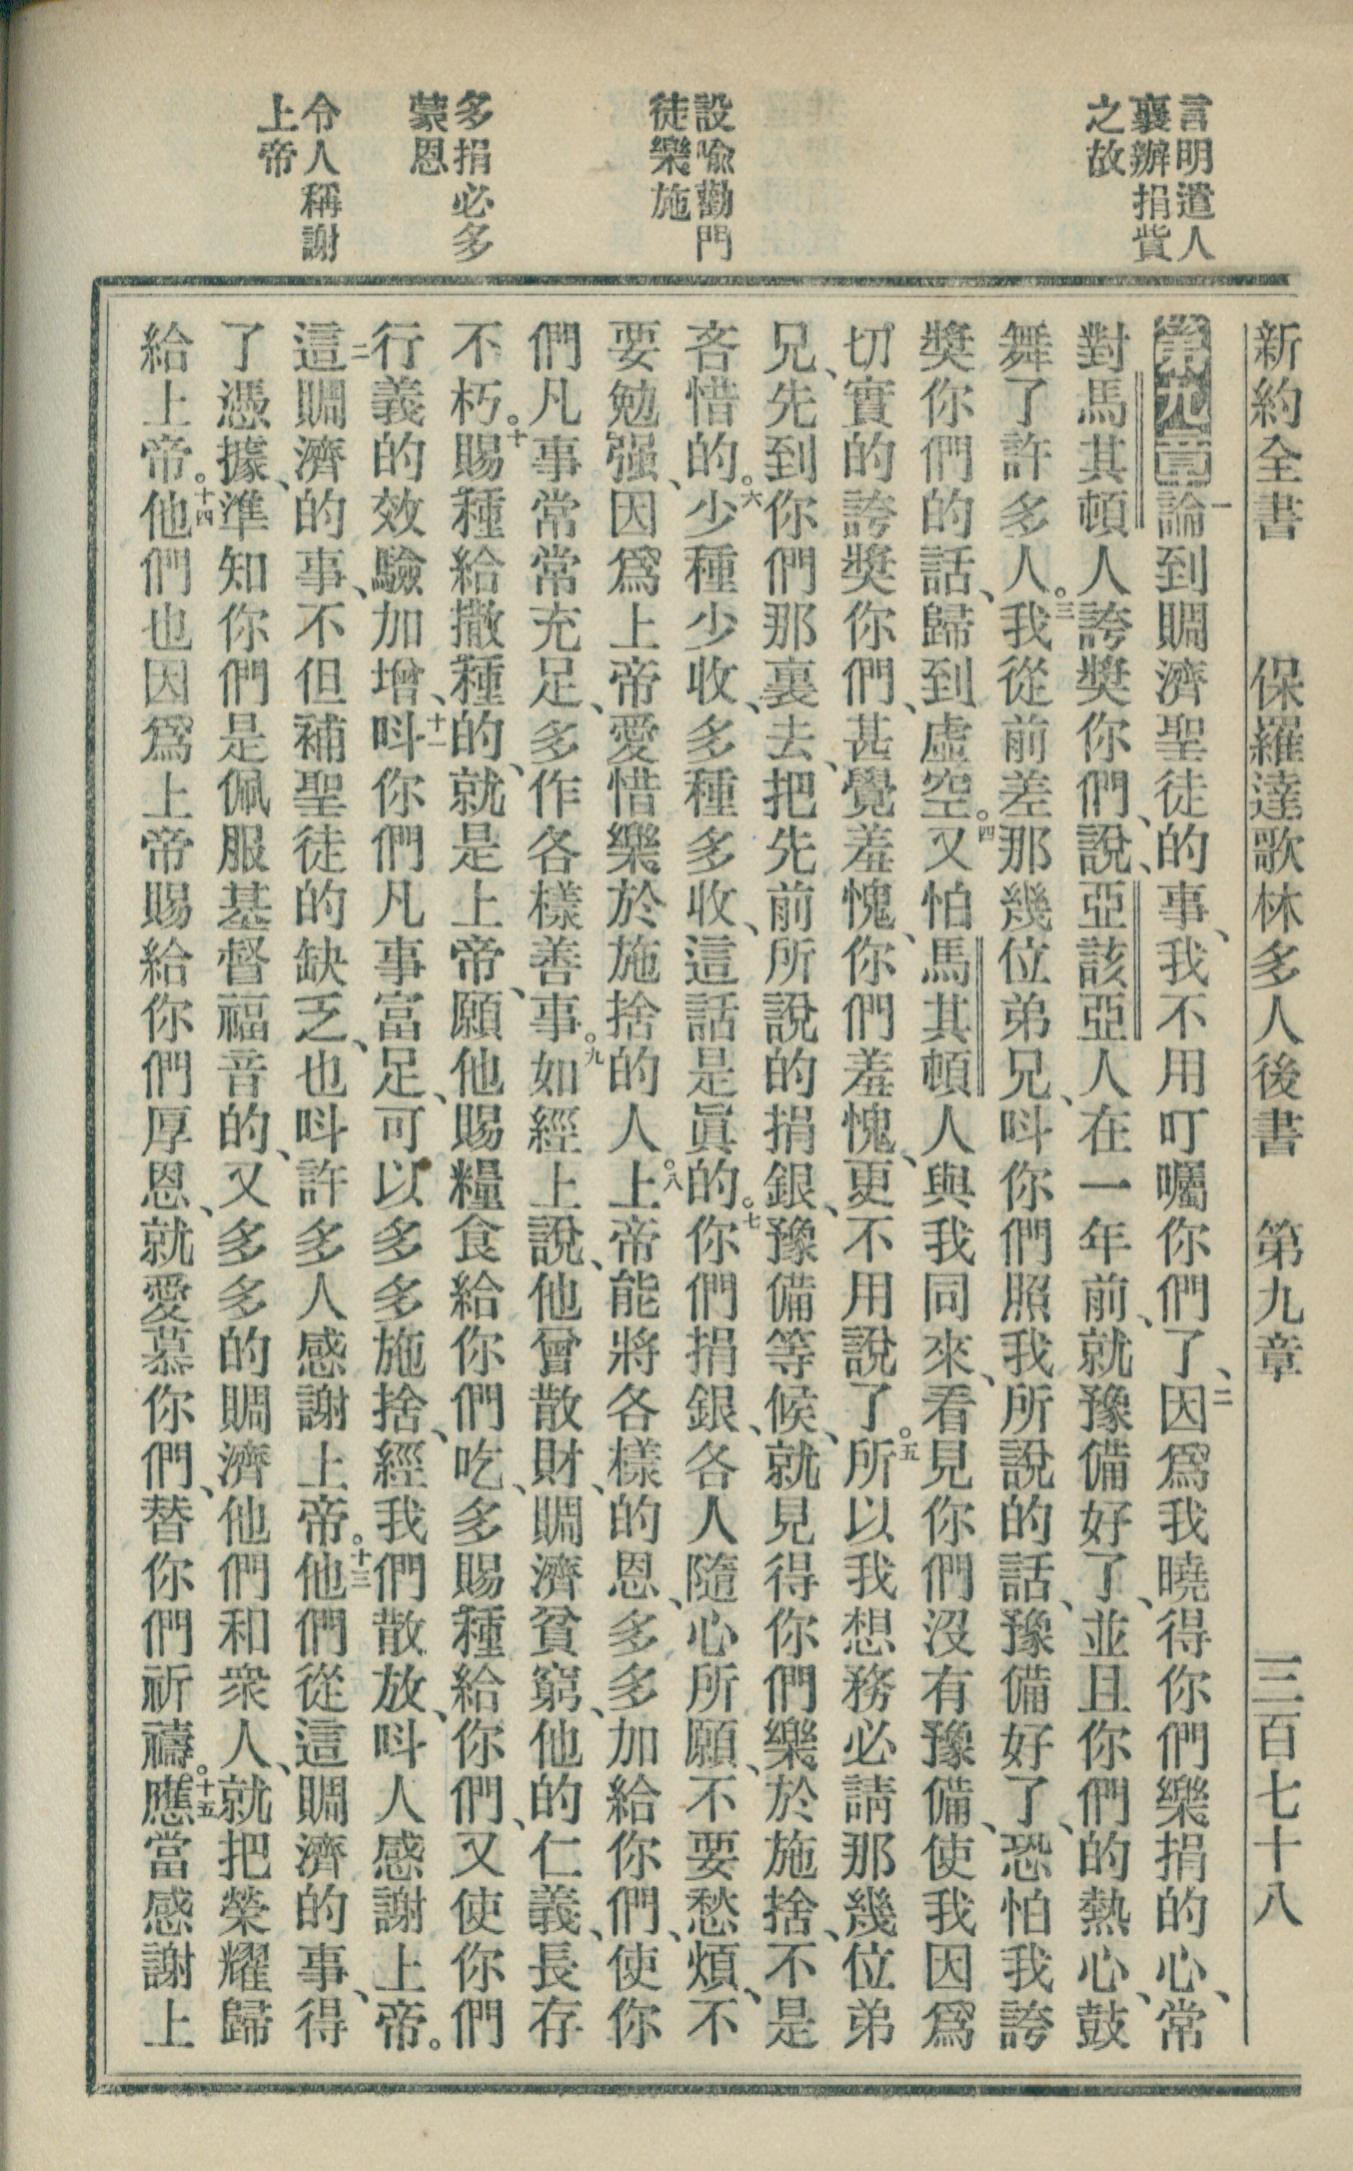 新約全書 保羅達歌林多人後書 第九章 三百七十八
言明遣人
襄辦捐貲
之故
設喩勸門
徒樂施
多捐必多
蒙恩
令人稱謝
上帝
第九章一論到賙濟聖徒的事、我不用叮囑你們了、二因爲我曉得你們樂捐的心、常
對馬其頓人誇奬你們、說、亞該亞人在一年前、就豫備好了、並且你們的熱心、鼓
舞了許多人。三我從前差那幾位弟兄、呌你們照我所說的話、豫備好了、恐怕我誇
奬你們的話、歸到虛空。四又怕馬其頓人與我同來、看見你們沒有豫備、使我因爲
切實的誇奬你們、甚覺羞愧、你們羞愧、更不用說了。五所以我想務必請那幾位弟
兄、先到你們那裏去、把先前所說的捐銀、豫備等候、就見得你們樂於施捨、不是
吝惜的。六少種少收、多種多收、這話是眞的。七你們捐銀、各人隨心所願、不要愁煩、不
要勉强、因爲上帝愛惜樂於施捨的人。八上帝能將各樣的恩、多多加給你們、使你
們凡事常常充足、多作各樣善事。九如經上說、他曾散財、賙濟貧窮、他的仁義、長存
不朽。十賜種給撒種的、就是上帝、願他賜糧食給你們吃、多賜種給你們、又使你們
行義的效驗加增、十一呌你們凡事富足、可以多多施捨、經我們散放、呌人感謝上帝。
二這賙濟的事、不但補聖徒的缺乏、也呌許多人感謝上帝。十三他們從這賙濟的事、得
了憑據、準知你們是佩服基督福音的、又多多的賙濟他們和衆人、就把榮耀歸
給上帝。十四他們也因爲上帝賜給你們厚恩、就愛慕你們、替你們祈禱。十五應當感謝上